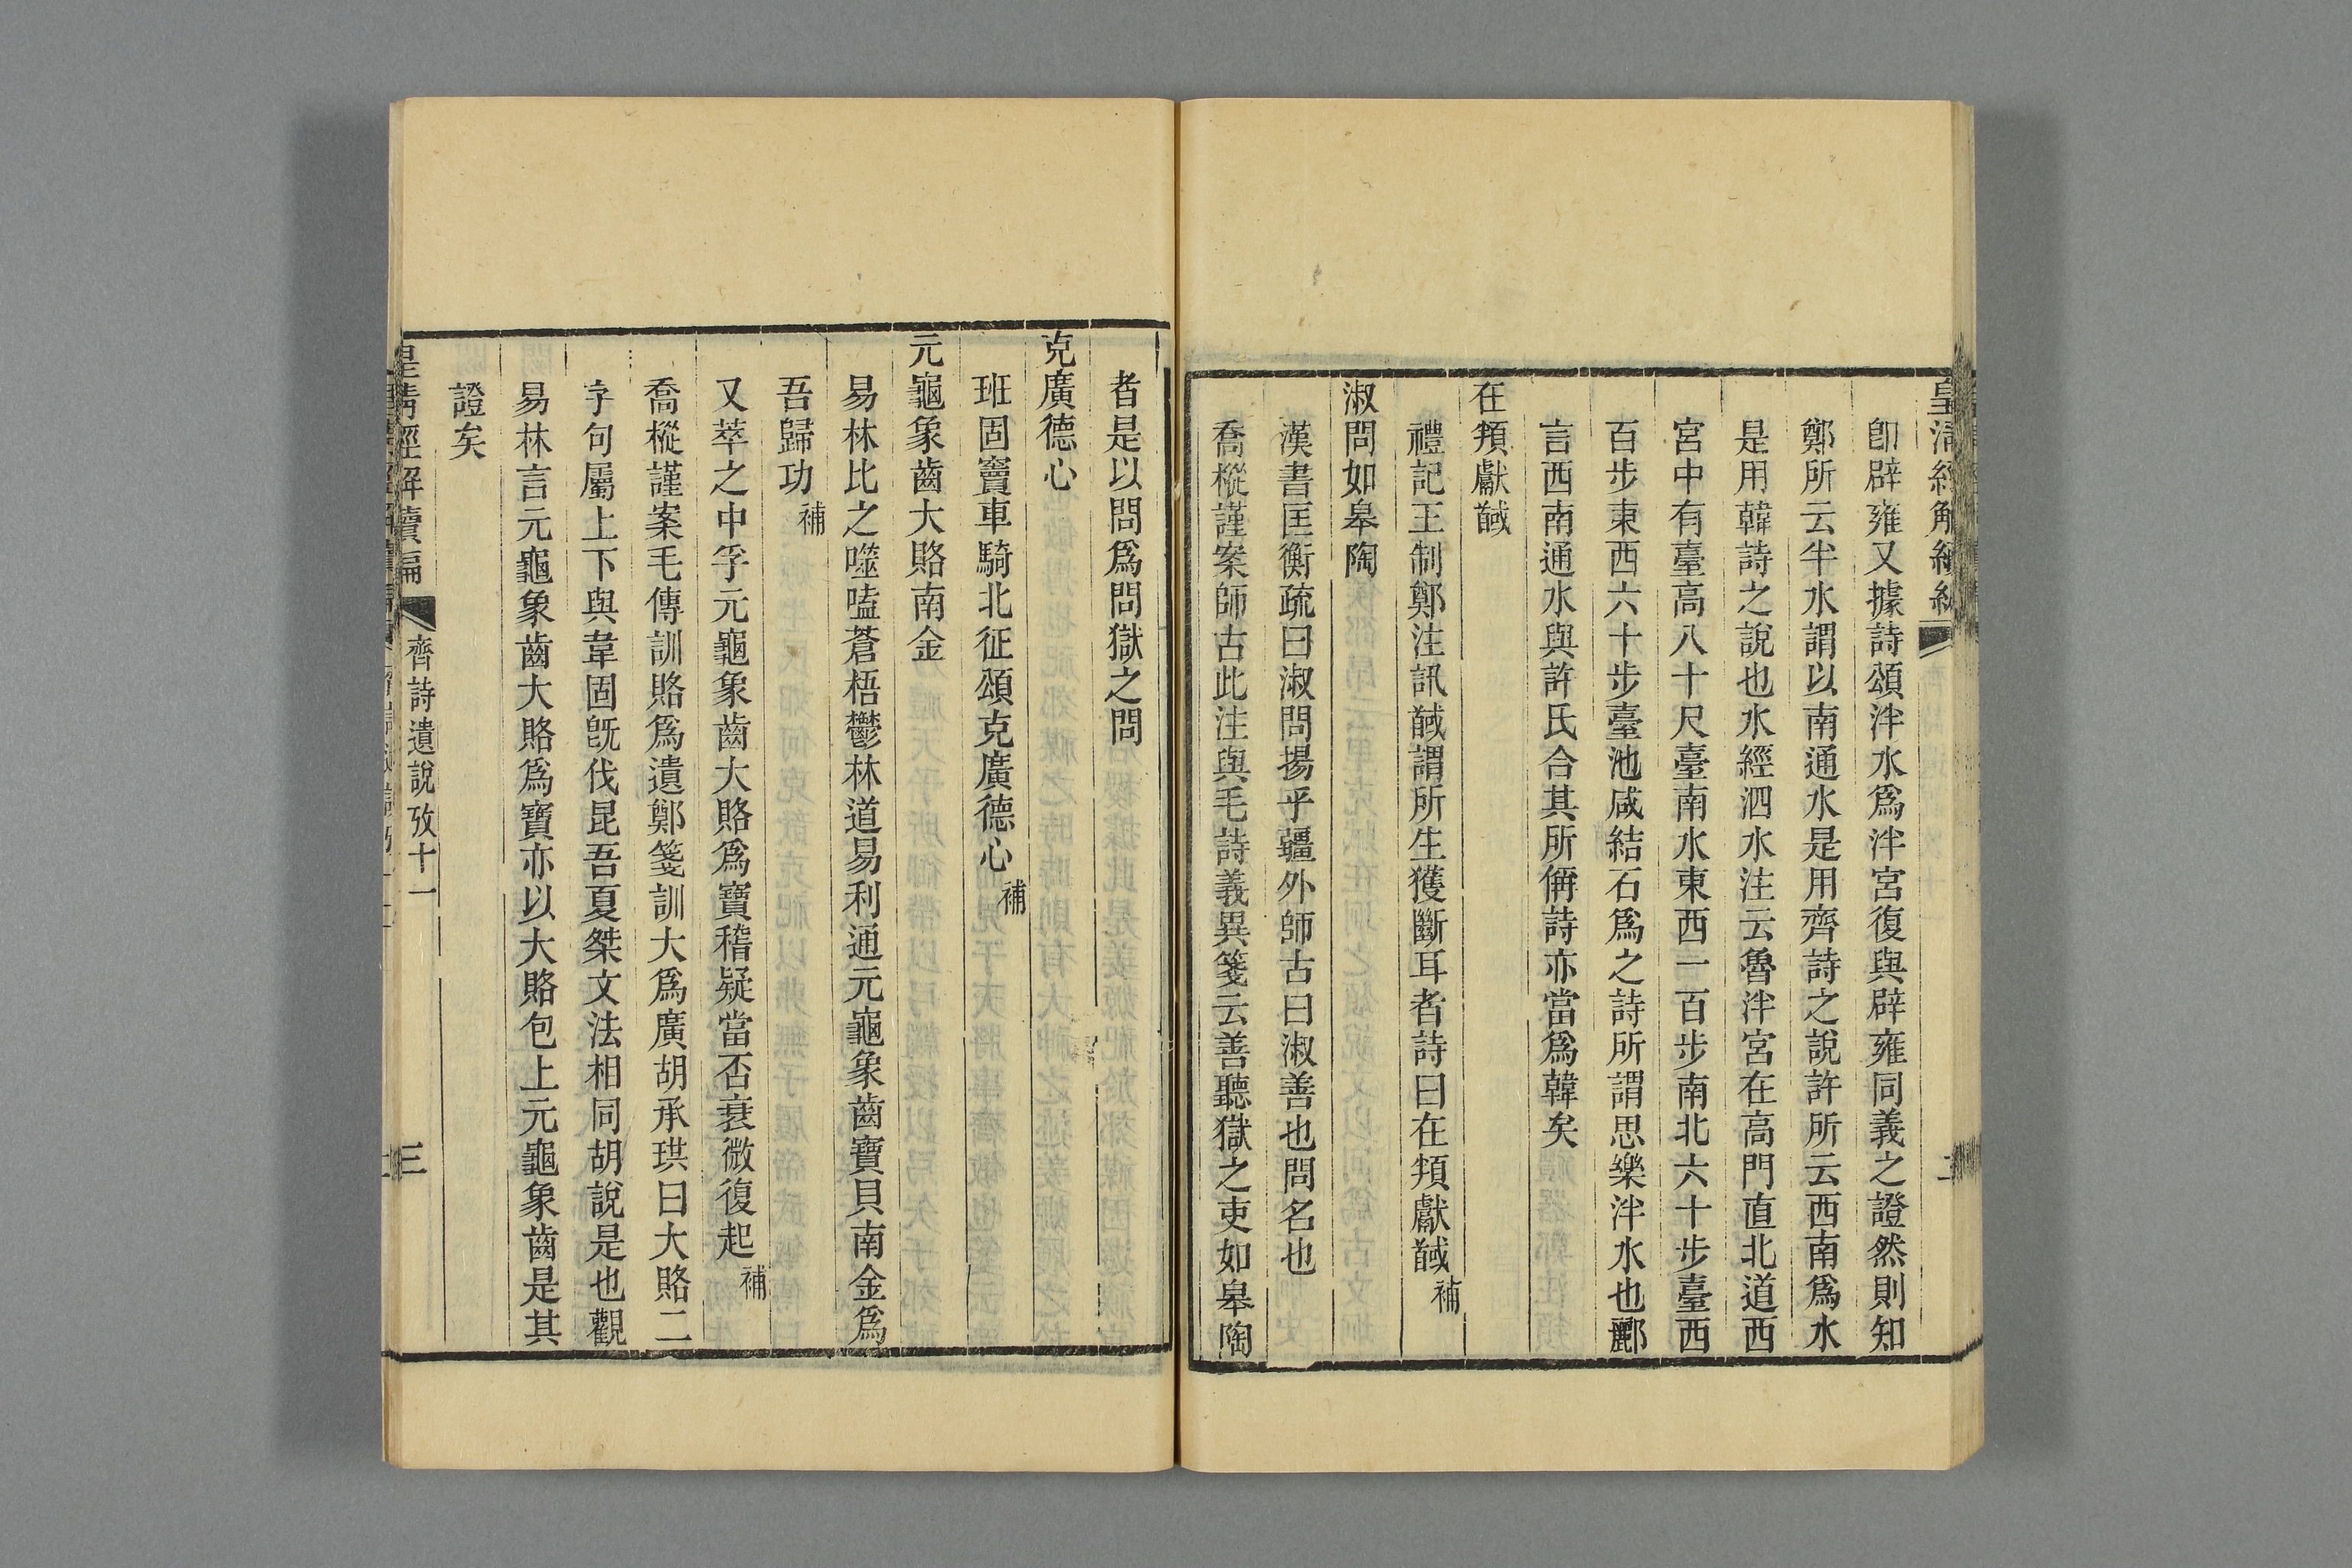 卽辟雍又據詩頌泮水爲泮宮復與辟雍同義之證然則知
鄭所云半水謂以南通水是用齊詩之說許所云西南爲水
是用韓詩之說也水經泗水注云魯泮宮在高門直北道西
宮中有臺高八十尺臺南水東西一百步南北六十步臺西
百步東西六十步臺池咸結石爲之詩所謂思樂泮水也酈
言西南通水與許氏合其所偁詩亦當爲韓矣
在頖獻馘
禮記王制鄭注訊馘謂所生獲斷耳者詩曰在頖獻馘補
淑問如皋陶
漢書匡衡疏曰淑問揚乎疆外師古曰淑善也問名也
喬樅謹案師古此注與毛詩義異箋云善聽獄之吏如皋陶
者是以問爲問獄之問
克廣德心
班固竇車騎北征頌克廣德心補
元龜象齒大賂南金
易林比之噬嗑蒼梧鬱林道易利通元龜象齒寶貝南金爲
吾歸功補
又萃之中孚元龜象齒大賂爲寶稽疑當否衰微復起補
喬樅謹案毛傳訓賂爲遺鄭箋訓大爲廣胡承珙曰大賂二
字句屬上下與韋固旣伐昆吾夏桀文法相同胡說是也觀
易林言元龜象齒大賂爲寶亦以大賂包上元龜象齒是其
證矣
皇清經解續編 齊詩遺說攷十一 三